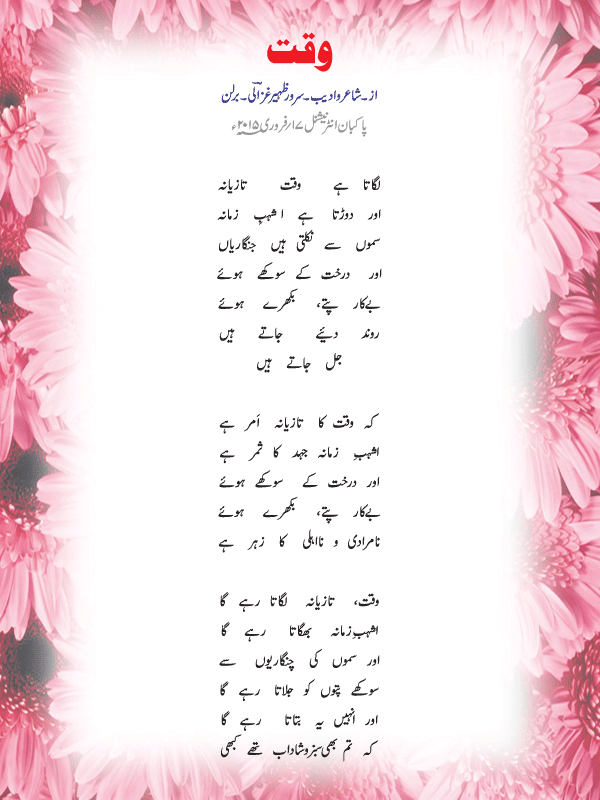 وقت
از۔شاعر وادیب۔سرور ظہیر غزالی۔برلن
پاکبان انٹرنیشنل ۱۷ فروری ۲۰۱۵ء
لگاتا ہے وقت تازیانہ
اور دوڑتا ہے اشہبِ زمانہ
سموں سے نکلتی ہیں جنگاریاں
اور درخت کے سوکھے ہوئے
بےکار پتے، بکھرے ہوئے
روند دئیے جاتے ہیں
جل جاتے ہیں
کہ وقت کا تازیانہ اَمر ہے
اشہبِ زمانہ جہد کا ثمر ہے
اور درخت کے سوکھے ہوئے
بےکار پتے، بکھرے ہوئے
نامرادی و نااہلی کا زہر ہے
وقت، تازیانہ لگاتا رہے گا
اشہبِ زمانہ بھگاتا رہے گا
اور سموں کی چنگاریوں سے
سوکھے پتوں کو جلاتا رہے گا
اور انہیں یہ بتاتا رہے گا
کہ تم بھی سبز و شاداب تھے کبھی